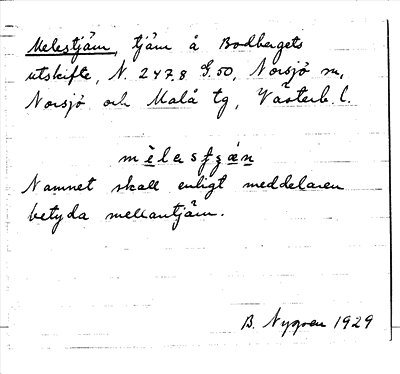 Melestjärn, tjärn å Bodbergets
utskifte, N. 247.8 Ö.50, Norsjö sn,
Norsjö och Malå tg, Västerb. l.
Namnet skall enligt meddelaren
betyda mellantjärn.
B. Nygren 1929